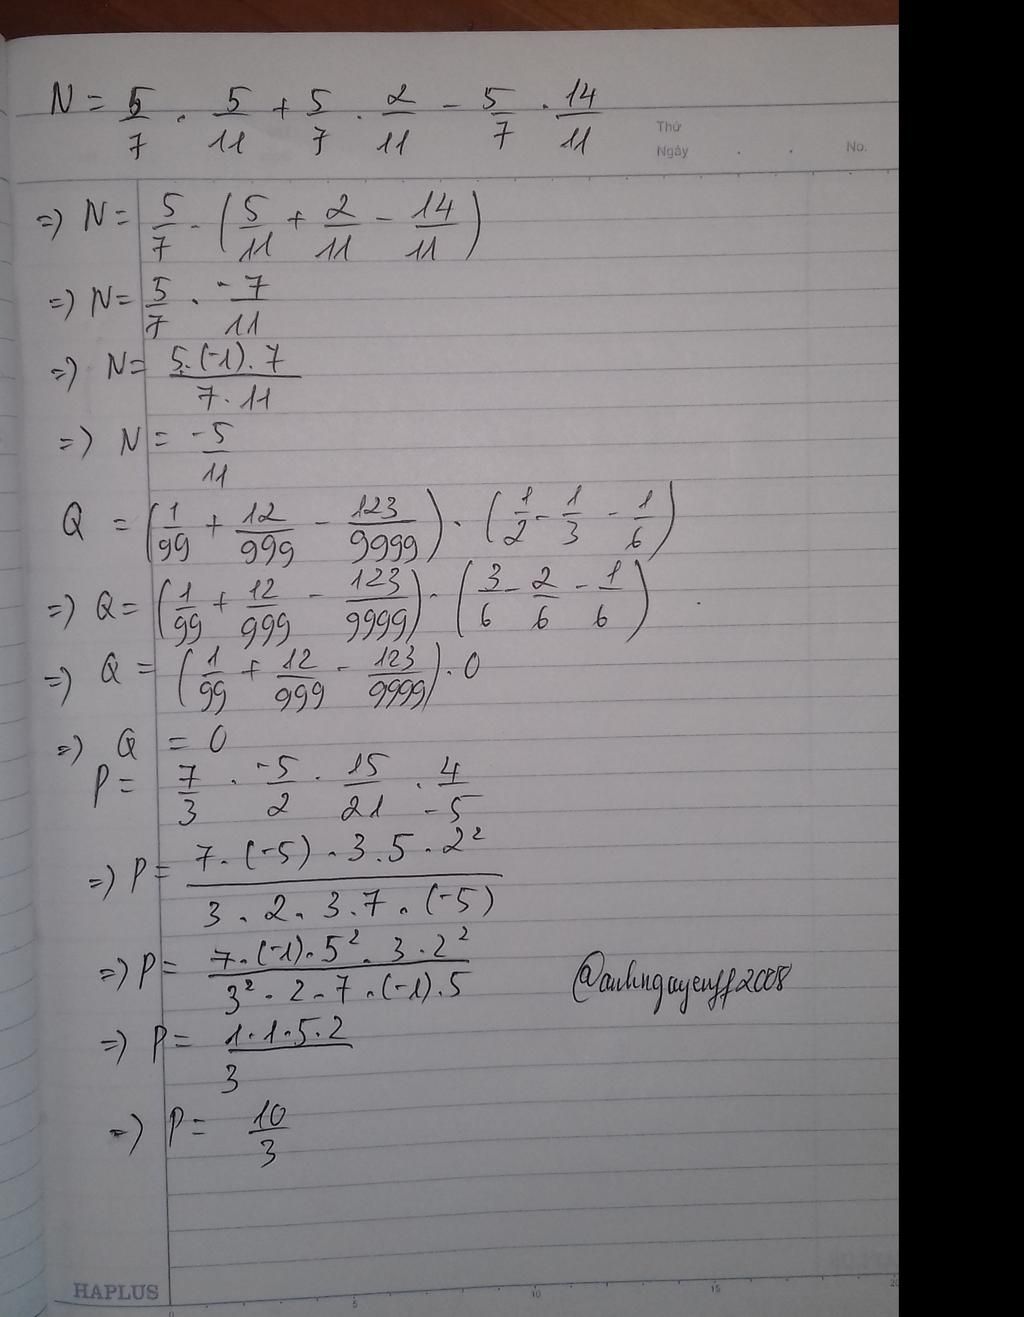 N = 5/7 . 5/11 + 5/7 . 2/11 - 5/7 . 14/11
Thứ
Ngày . . No.
=> N = 5/7 . (5/11 + 2/11 - 14/11)
=> N = 5/7 . -7/11
=> N = 5.(-1).7/7.11
=> N = -5/11
Q = (1/99 + 12/999 - 123/9999) . (1/2 - 1/3 - 1/6)
=> Q = (1/99 + 12/999 - 123/9999) . (3/6 - 2/6 - 1/6)
=> Q = (1/99 + 12/999 - 123/9999) . 0
=> Q = 0
P = 7/3 . -5/2 . 15/21 . 4/-5
=> P = 7.(-5).3.5.2²/3.2.3.7.(-5)
=> P = 7.(-1).5².3.2²/3².2.7.(-1).5
@anhnguyenff2008
=> P = 1.1.5.2/3
=> P = 10/3
HAPLUS
0 5 10 15 20